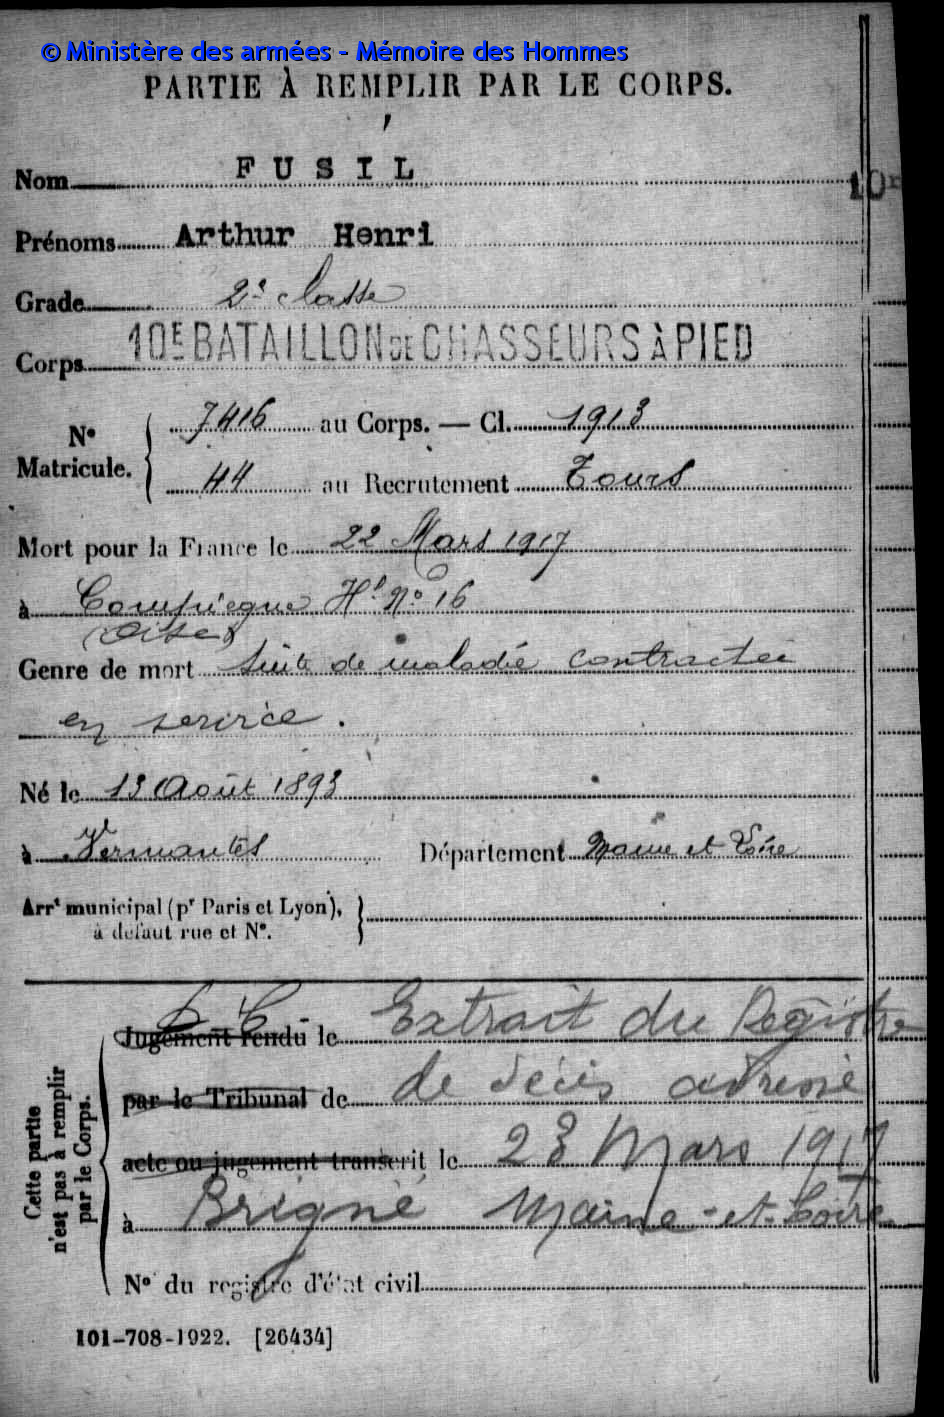 © Ministère des armées - Mémoire des Hommes
PARTIE À REMPLIR PAR LE CORPS.
Nom FUSIL
10
Prénoms Arthur Henri
Grade 2e classe
Corps 10E BATAILLON DE CHASSEURS À PIED
No Matricule. { 7416 au Corps. — Cl. 1913
44 au Recrutement Tours
Mort pour la France le 22 Mars 1917
à Compiègne Hl No 16
(Oise)
Genre de mort suite de maladie contractée
en service.
Né le 13 Août 1893
à Vernantes Département Maine et Loire
Arrt municipal (pr Paris et Lyon),
à défaut rue et No. }
Cette partie n'est pas à remplir par le Corps.
Jugement rendu le Extrait du Registre
par le Tribunal de de décès adressé
acte ou jugement transcrit le 23 Mars 1917
à Brigné Maine-et-Loire
No du registre d'état civil
101-708-1922. [26434]